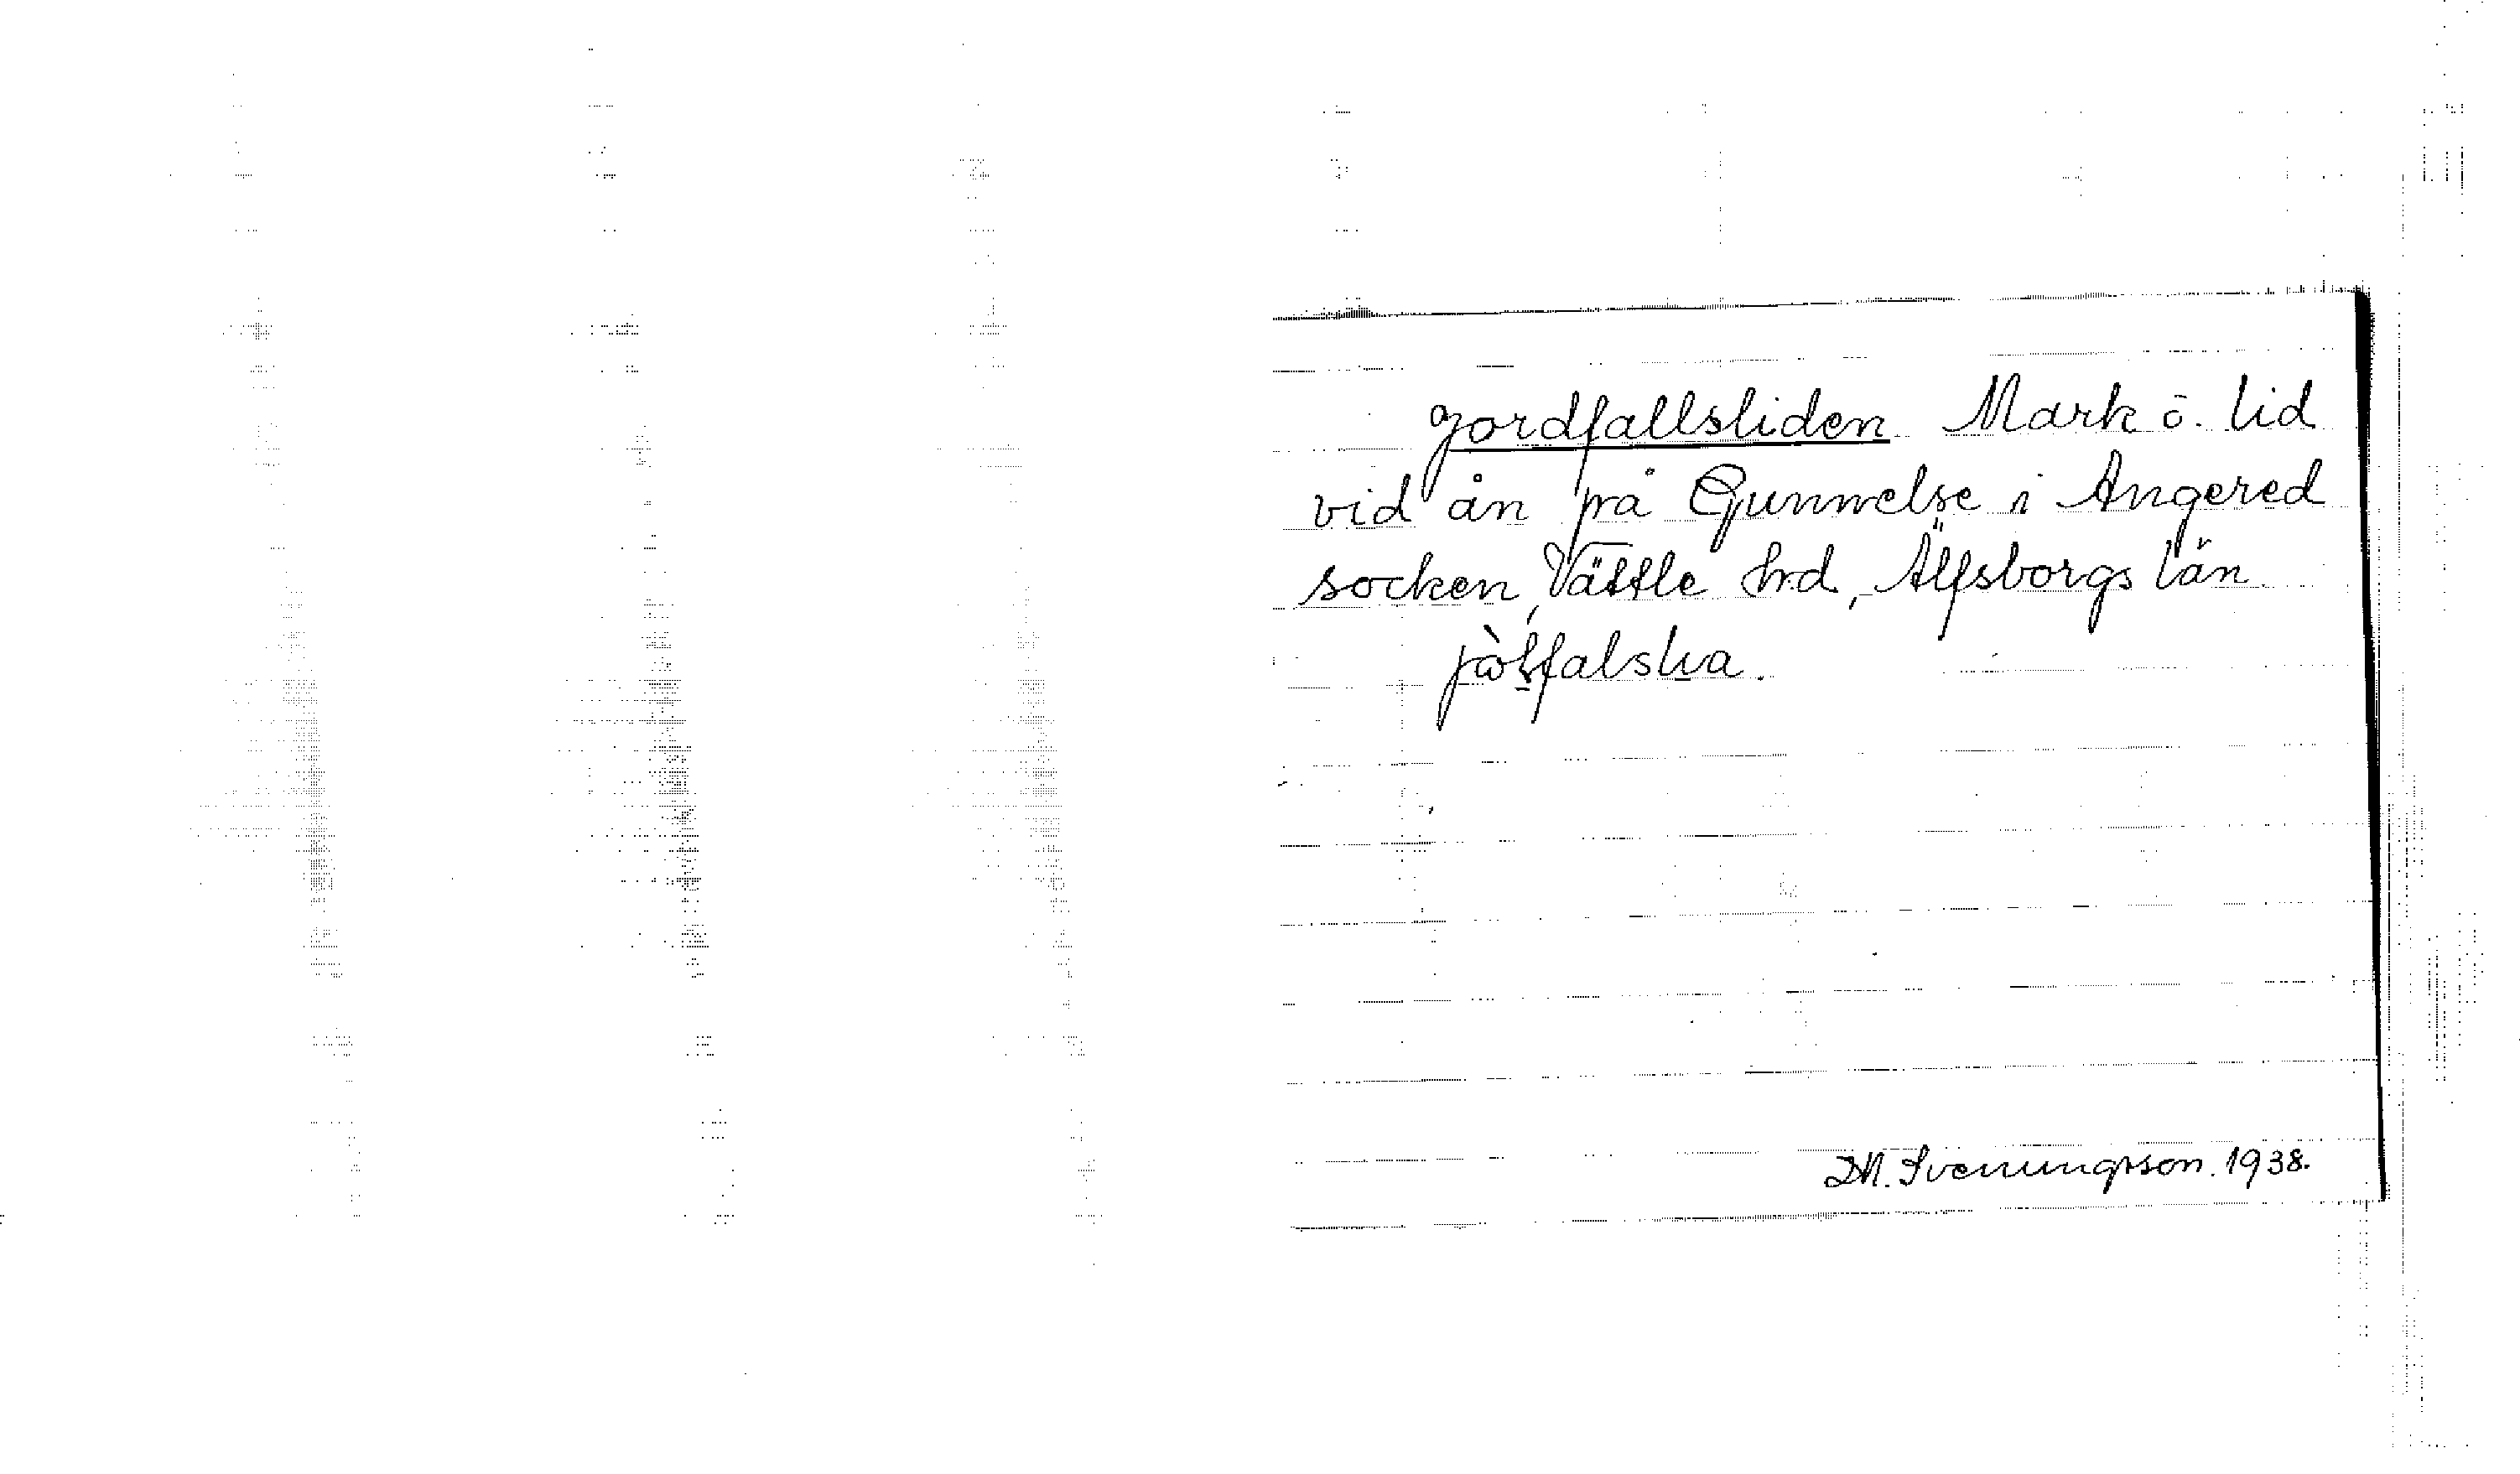 Jordfallsliden Mark o. lid
vid ån på Gunnelse i Angered
socken, Vättle hrd, Älfsborgs län.
M. Svenungsson. 1938.